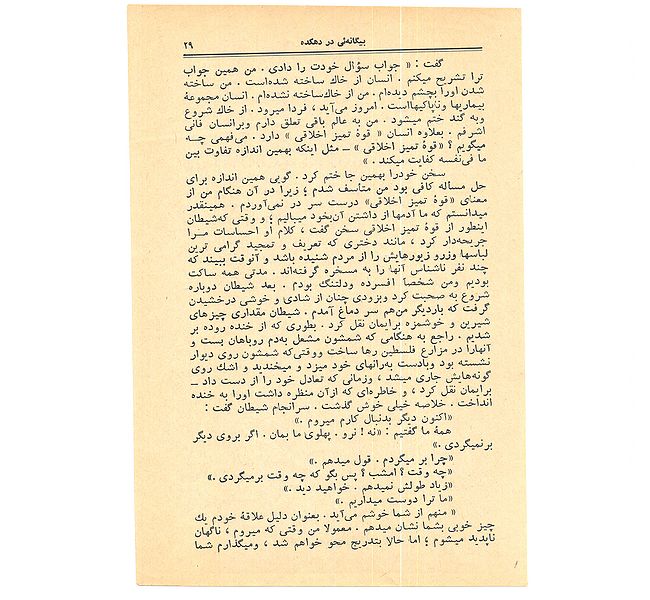 بیگانه‌ئی در دهکده
۲۹
گفت : « جواب سؤال خودت را دادی . من همین جواب
ترا تشریح میکنم . انسان از خاك ساخته شده‌است . من ساخته
شدن اورا بچشم دیده‌ام . من از خاك‌ساخته نشده‌ام . انسان مجموعهٔ
بیماریها وناپاکیهااست . امروز می‌آید ، فردا میرود . از خاك شروع
وبه گند ختم میشود . من به عالم باقی تعلق دارم وبرانسان فانی
اشرفم . بعلاوه انسان « قوهٔ تمیز اخلاقی » دارد . می‌فهمی چـه
میگویم ؟ «قوهٔ تمیز اخلاقی » ــ مثل اینکه بهمین اندازه تفاوت بین
ما فی‌نفسه کفایت میکند . »
سخن خودرا بهمین جا ختم کرد . گویی همین اندازه برای
حل مسأله کافی بود من متأسف شدم ؛ زیرا در آن هنگام من از
معنای «قوهٔ تمیز اخلاقی» درست سر در نمی‌آوردم . همینقدر
میدانستم که ما آدمها از داشتن آن‌بخود میبالیم ؛ و وقتی که‌شیطان
اینطور از قوهٔ تمیز اخلاقی سخن گفت ، کلام او احساسات مـرا
جریحه‌دار کرد ، مانند دختری که تعریف و تمجید گرامی ترین
لباسها وزرو زیورهایش را از مردم شنیده باشد و آنوقت ببیند که
چند نفر ناشناس آنها را به مسخره گرفته‌اند . مدتی همه ساکت
بودیم ومن شخصاً افسرده ودلتنگ بودم . بعد شیطان دوباره
شروع به صحبت کرد وبزودی چنان از شادی و خوشی درخشیدن
گرفت که باردیگر من‌هم سر دماغ آمدم . شیطان مقداری چیزهای
شیرین و خوشمزه برایمان نقل کرد . بطوری که از خنده روده بر
شدیم . راجع به هنگامی که شمشون مشعل به‌دم روباهان بست و
آنهارا در مزارع فلسطین رها ساخت ووقتی‌که شمشون روی دیوار
نشسته بود وبادست به‌رانهای خود میزد و میخندید و اشك روی
گونه‌هایش جاری میشد ، وزمانی که تعادل خود را از دست داد ــ
برایمان نقل کرد ، و خاطره‌ای که ازآن منظره داشت اورا به خنده
انداخت . خلاصه خیلی خوش گذشت . سرانجام شیطان گفت :
«اکنون دیگر بدنبال کارم میروم .»
همهٔ ما گفتیم : «نه ! نرو . پهلوی ما بمان . اگر بروی دیگر
برنمیگردی .»
«چرا بر میگردم . قول میدهم .»
«چه وقت ؟ امشب ؟ پس بگو که چه وقت برمیگردی .»
«زیاد طولش نمیدهم . خواهید دید .»
«ما ترا دوست میداریم .»
« منهم از شما خوشم می‌آید . بعنوان دلیل علاقهٔ خودم یك
چیز خوبی بشما نشان میدهم . معمولا من وقتی که میروم ، ناگهان
ناپدید میشوم ؛ اما حالا بتدریج محو خواهم شد ، ومیگذارم شما